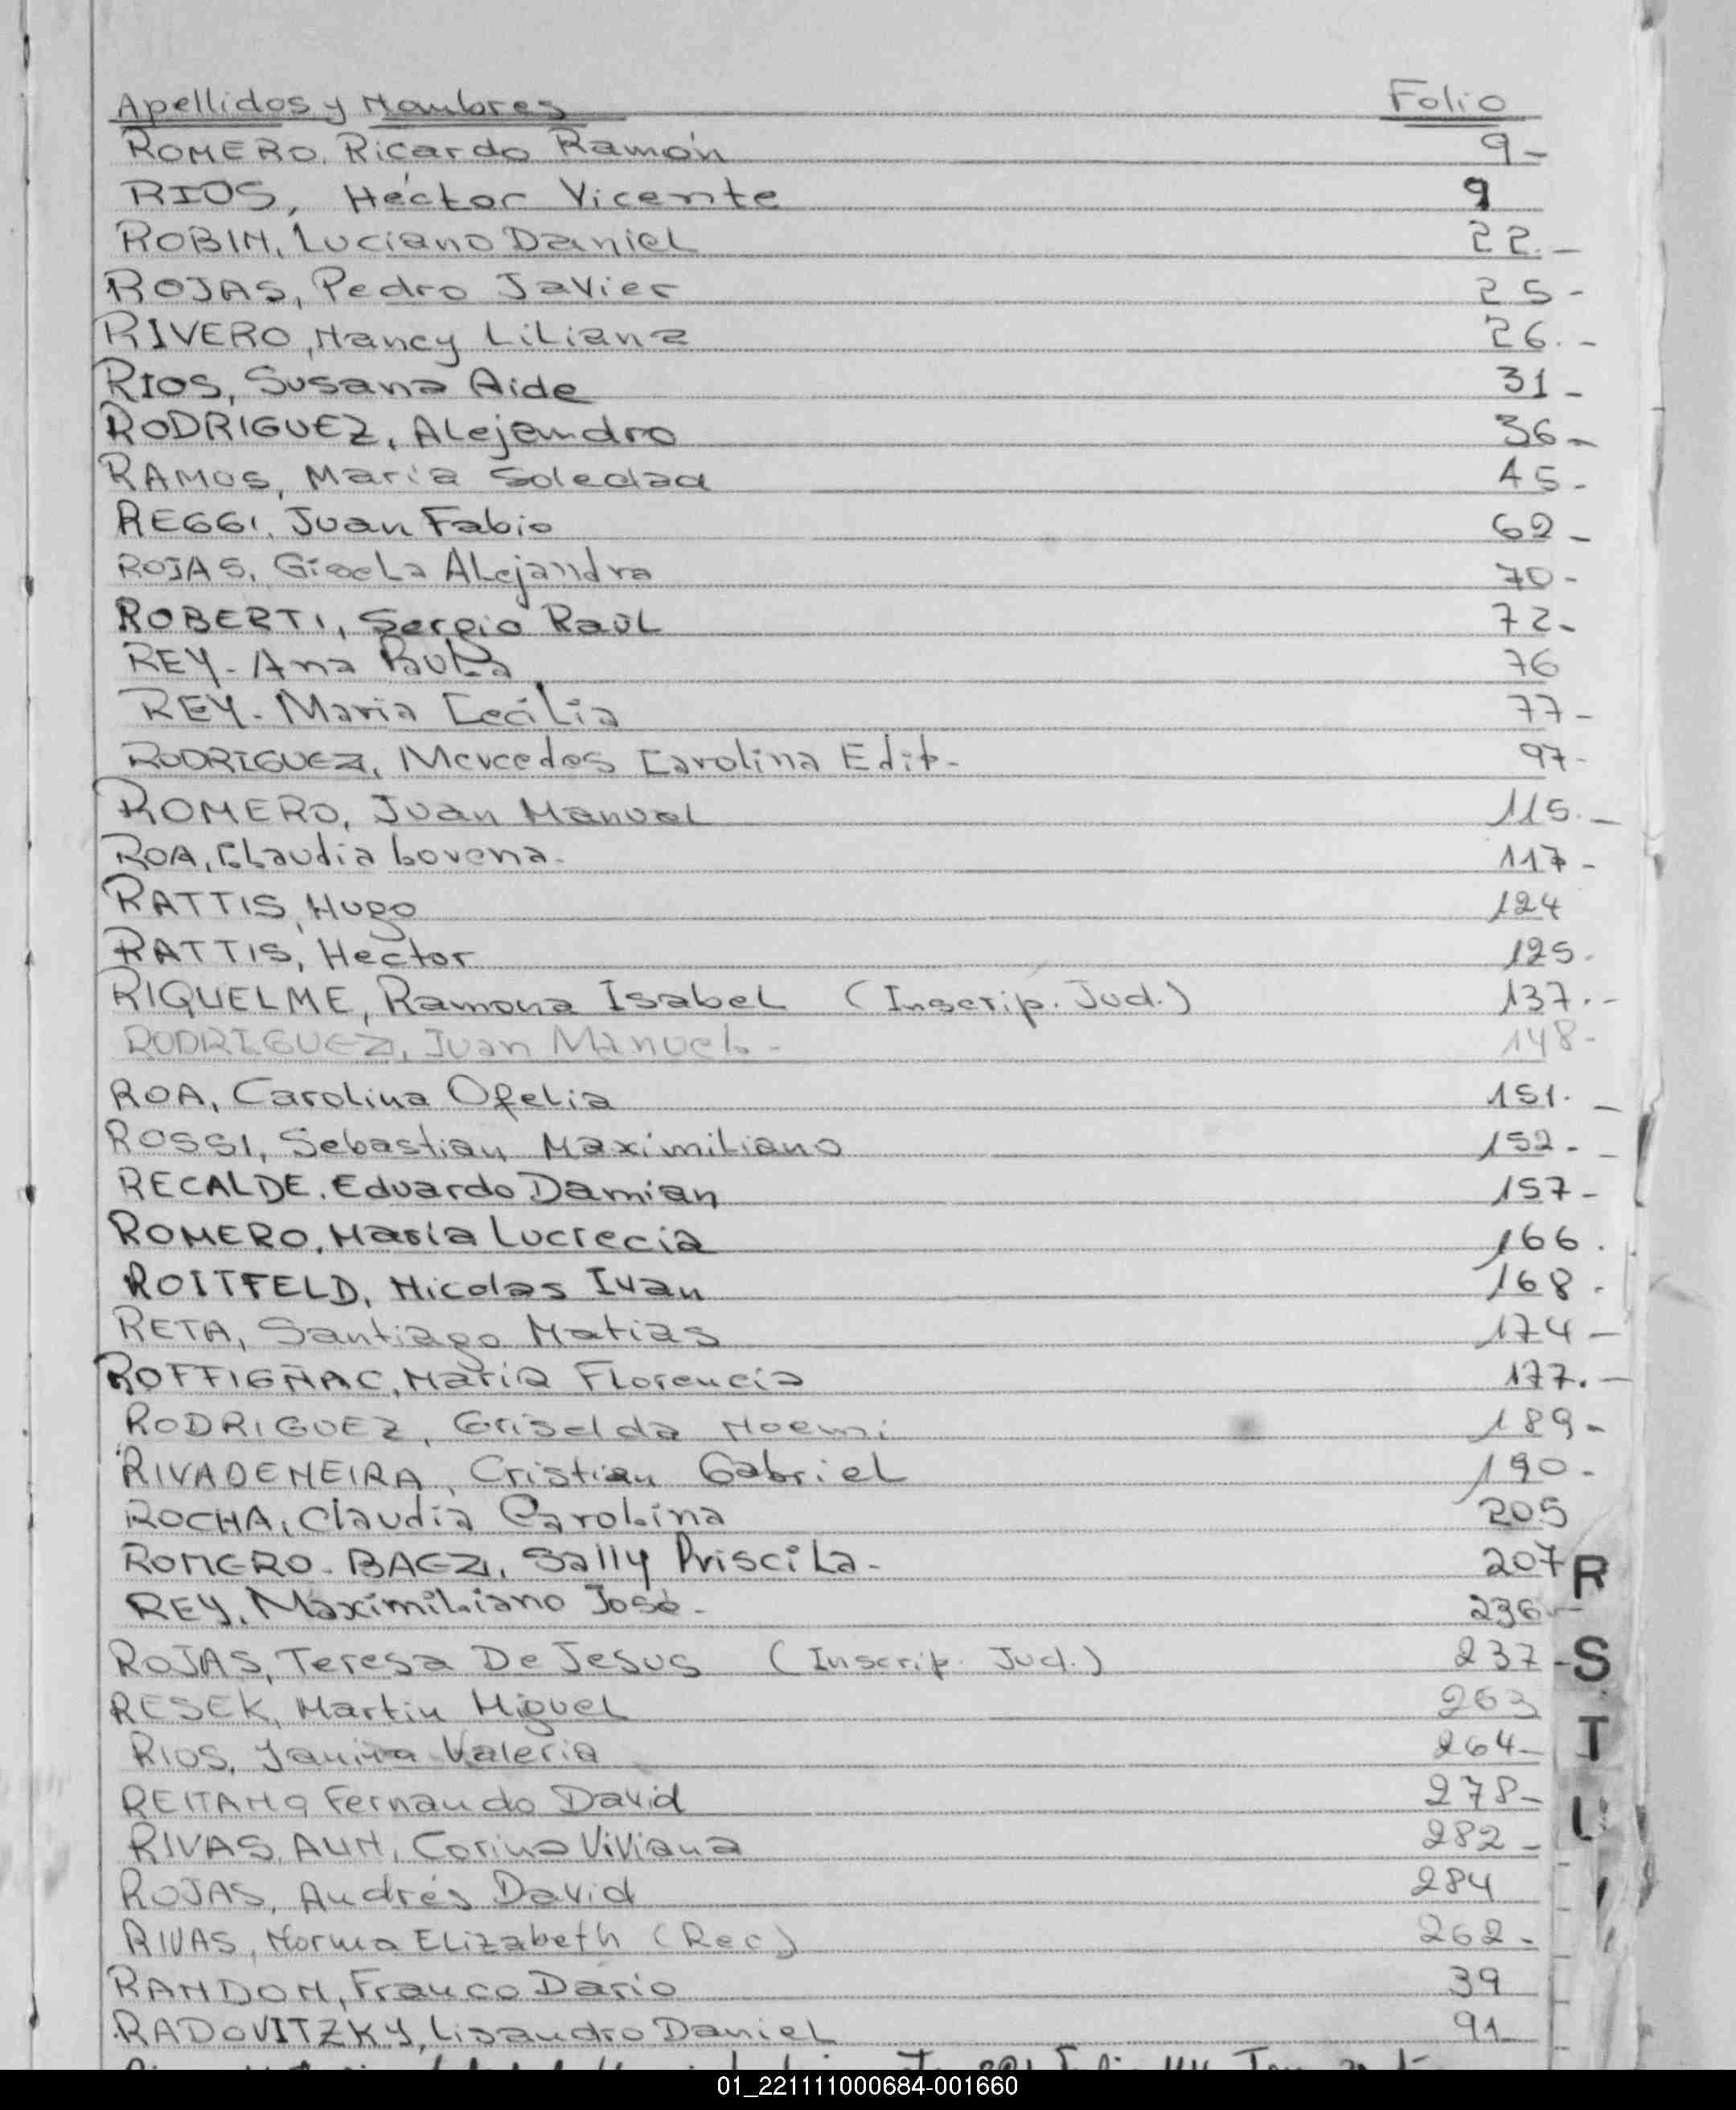 Apellidos y Nombres Folio
ROMERO, Ricardo Ramón 9-
RIOS, Héctor Vicente 9
ROBIN, Luciano Daniel 22.-
ROJAS, Pedro Javier 25-
RIVERO, Nancy Liliana 26.-
RIOS, Susana Aide 31-
RODRIGUEZ, Alejandro 36-
RAMOS, María Soledad 45-
REGGI, Juan Fabio 62-
ROJAS, Gisela Alejandra 70-
ROBERTI, Sergio Raúl 72-
REY- Ana Paula 76
REY- Maria Cecilia 77-
RODRIGUEZ, Mercedes Carolina Edit- 97-
ROMERO, Juan Manuel 115.-
ROA, Claudia Lorena- 117-
RATTIS, Hugo 124
RATTIS, Hector 125.
RIQUELME, Ramona Isabel (Inscrip. Jud.) 137.-
RODRIGUEZ, Juan Manuel- 148-
ROA, Carolina Ofelia 151.-
ROSSI, Sebastian Maximiliano 152.-
RECALDE, Eduardo Damian 157-
ROMERO, María Lucrecia 166.
ROITFELD, Nicolas Ivan 168.
RETA, Santiago Matias 174-
ROFFIGNAC, María Florencia 177.-
RODRIGUEZ, Griselda Noemi 189-
RIVADENEIRA, Cristian Gabriel 190-
ROCHA, Claudia Carolina 205
ROMERO-BAEZ, Sally Priscila- 207
R
REY, Maximiliano José- 236-
ROJAS, Teresa De Jesus (Inscrip. Jud.) 237-
S
RESEK, Martin Miguel 263
RIOS, Yanina Valeria 264-
T
REITANO Fernando David 278-
U
RIVAS AUN, Corina Viviana 282-
ROJAS, Andrés David 284
RIVAS, Norma Elizabeth (Rec) 262-
RANDON, Franco Dario 39
RADOVITZKY, Lisandro Daniel 91
01_221111000684-001660